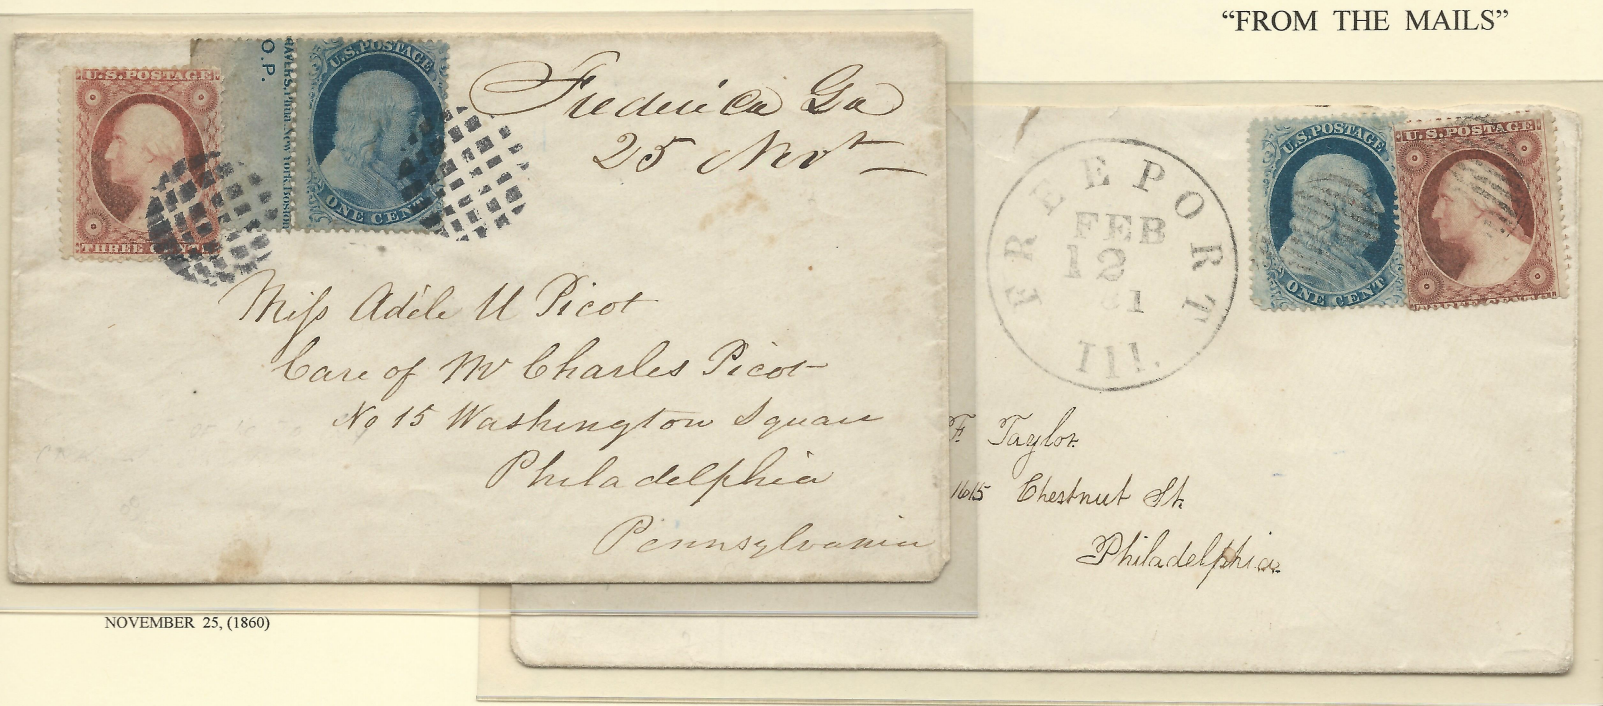 "FROM THE MAILS"
U.S. POSTAGE
THREE CENTS
O.P.
U.S. POSTAGE
ONE CENT
Frederica Ga
25 Novr
Miss Adèle U Picot
Care of Mr Charles Picot
No 15 Washington Square
Philadelphia
Pennsylvania
NOVEMBER 25, (1860)
FREEPORT
FEB
12
61
Ill.
U.S. POSTAGE
ONE CENT
U.S. POSTAGE
F. Taylor
1615 Chestnut St.
Philadelphia.